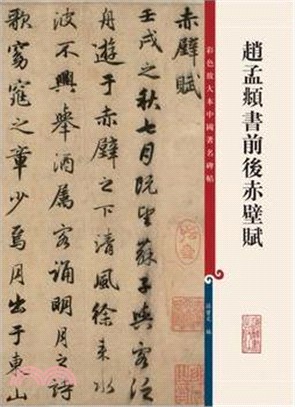 赤壁賦
壬戌之秋七月既望蘇子與客泛
舟遊于赤壁之下清風徐来水
波不興舉酒属客誦明月之詩
歌窈窕之章少焉月出于東山
彩色放大本中國著名碑帖
趙孟頫書前後赤壁賦
孫寶文 編